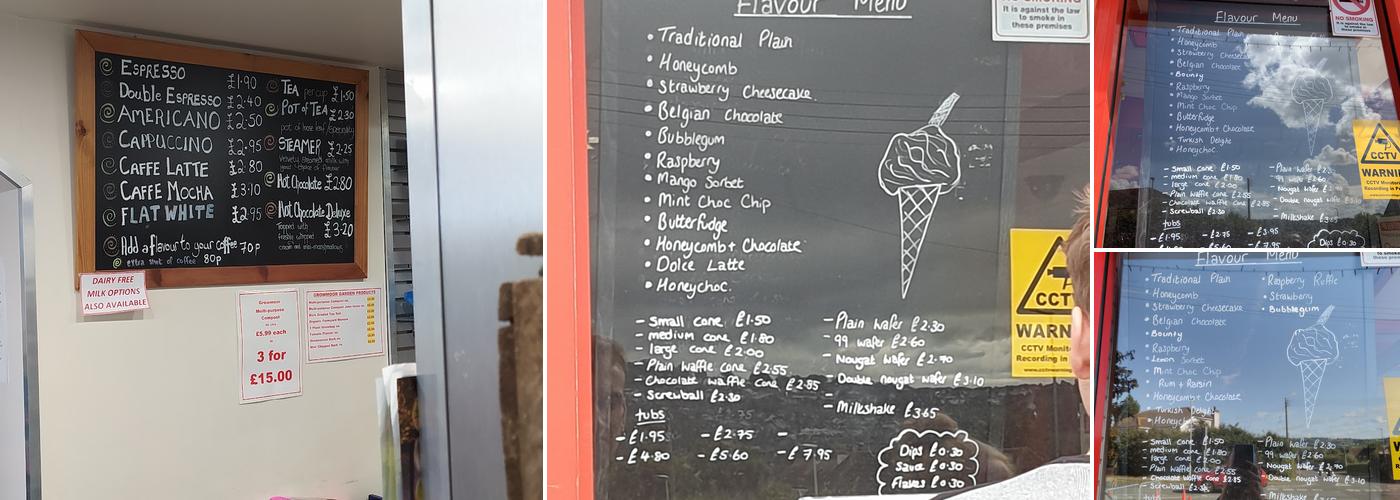 ESPRESSO £1.90
Double ESPRESSO £2.40
AMERICANO £2.50
CAPPUCCINO £2.95
CAFFE LATTE £2.80
CAFFE MOCHA £3.10
FLAT WHITE £2.95
Add a flavour to your coffee 70p
extra shot of coffee 80p
TEA per cup £1.50
POT OF TEA £2.30
pot of loose leaf/speciality
STEAMER £2.25
Hot Chocolate £2.80
Hot Chocolate Deluxe
£3.20
Topped with
DAIRY FREE
MILK OPTIONS
ALSO AVAILABLE
Growmoor
Multi-purpose
Compost
£5.99 each
3 for
£15.00
GROWMOOR GARDEN PRODUCTS
Flavour Menu
NO SMOKING
It is against the law
to smoke in
these premises
• Traditional Plain
• Honeycomb
• Strawberry Cheesecake
• Belgian Chocolate
• Bubblegum
• Raspberry
• Mango Sorbet
• Mint Choc Chip
• Butterfudge
• Honeycomb + Chocolate
• Dolce Latte
• Honeychoc.
- Small cone £1.50
- medium cone £1.80
- large cone £2.00
- Plain waffle cone £2.55
- Chocolate waffle cone £2.85
- Screwball £2.30
- Plain wafer £2.30
- 99 wafer £2.60
- Nougat wafer £2.70
- Double nougat wafer £3.10
- Milkshake £3.65
tubs
- £1.95 - £2.75 -
- £4.80 - £5.60 - £7.95
Dips £0.30
Sauce £0.30
Flakes £0.30
CCT
WARN
CCTV Monit
Recording in
Flavour Menu
NO SMOKING
It is against the law
to smoke in
these premises
• Traditional Plain
• Honeycomb
• Strawberry Cheesecake
• Belgian Chocolate
• Bounty
• Raspberry
• Mango Sorbet
• Mint Choc Chip
• Butterfudge
• Honeycomb + Chocolate
• Turkish Delight
• Honeychoc
- Small cone £1.50
- medium cone £1.80
- large cone £2.00
- Plain waffle cone £2.55
- Chocolate waffle cone £2.85
- Screwball £2.30
- Plain wafer £2.30
- 99 wafer £2.60
- Nougat wafer
- Double nougat wafer
- Milkshake £3.65
tubs
- £1.95 - £2.75 - £3.95
- £4.80 - £5.60 - £7.95
Dips £0.30
CCTV
WARNI
CCTV Monitor
Recording in
Flavour Menu
these premises
• Traditional Plain
• Honeycomb
• Strawberry Cheesecake
• Belgian Chocolate
• Bounty
• Raspberry
• Lemon Sorbet
• Mint Choc Chip
• Rum + Raisin
• Honeycomb + Chocolate
• Turkish Delight
• Raspberry Ruffle
• Strawberry
• Bubblegum
- Small cone £1.50
- medium cone £1.80
- large cone £2.00
- Plain waffle cone £2.55
- Chocolate waffle cone £2.85
- Screwball
- Plain wafer £2.30
- 99 wafer £2.60
- Nougat wafer £2.70
- Double nougat wafer £3.10
- Milkshake
tubs